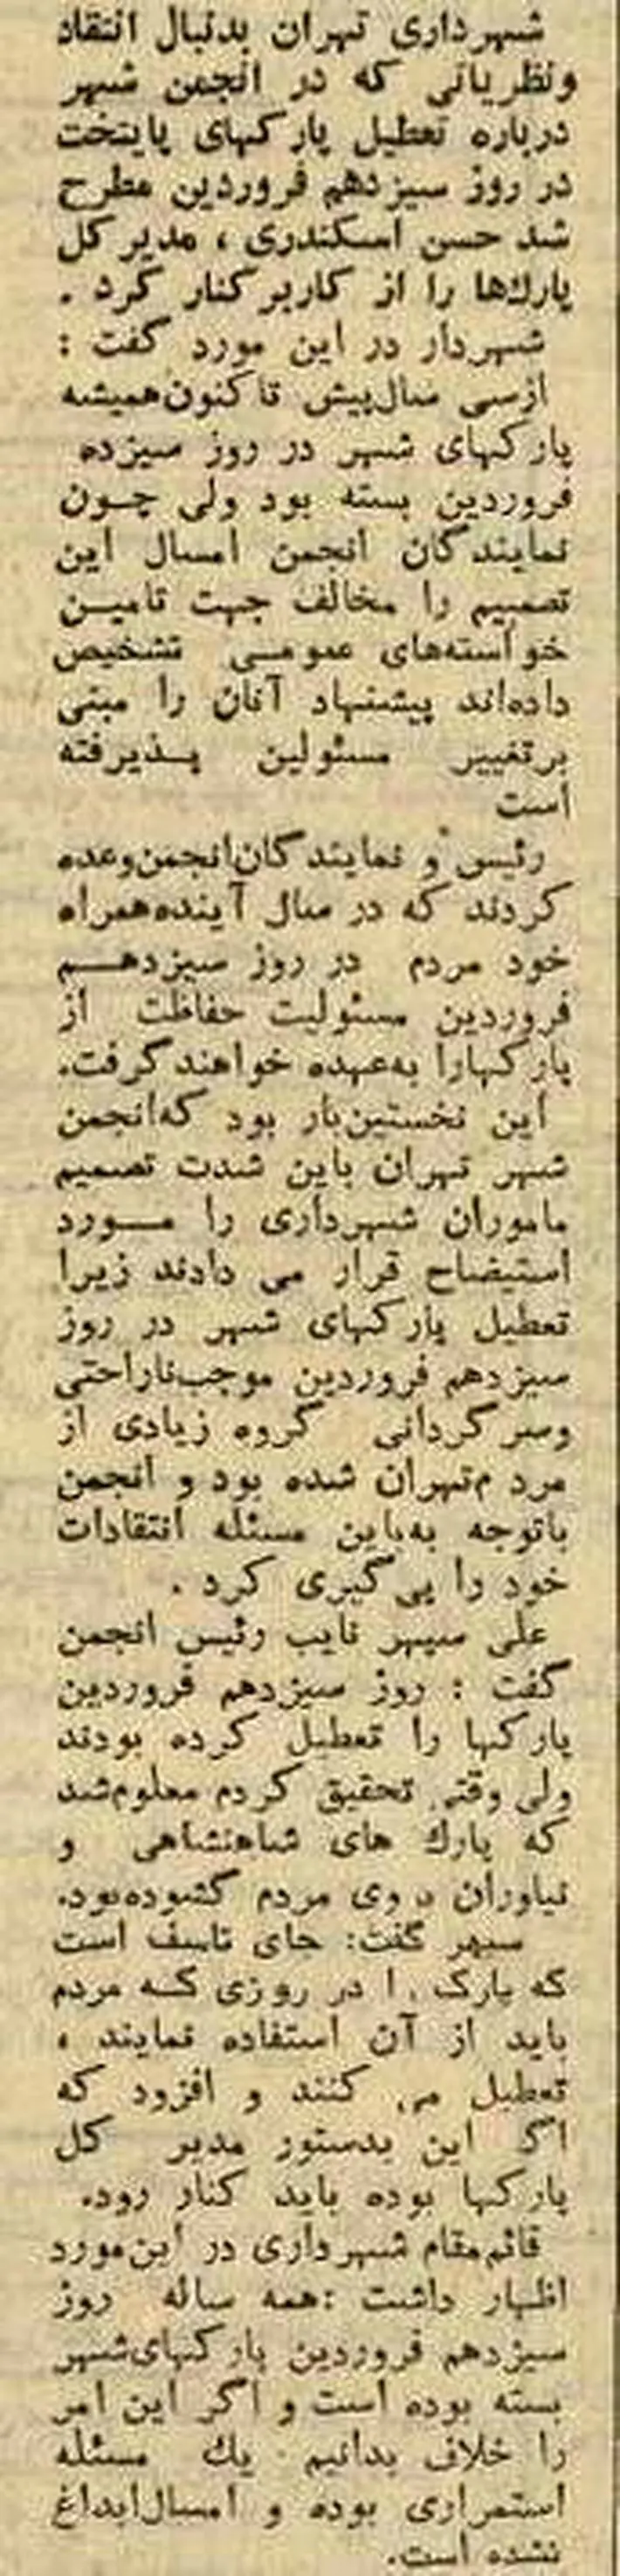 شهرداری تهران بدنبال انتقاد
ونظریاتی که در انجمن شهر
درباره تعطیل پارکهای پایتخت
در روز سیزدهم فروردین مطرح
شد حسن اسکندری ، مدیر کل
پارك‌ها را از کاربرکنار کرد .
شهردار در این مورد گفت :
ازسی سال‌پیش تاکنون‌همیشه
پارکهای شهر در روز سیزده
فروردین بسته بود ولی چون
نمایندگان انجمن امسال این
تصمیم را مخالف جهت تامین
خواسته‌های عمومی تشخیص
داده‌اند پیشنهاد آنان را مبنی
برتغییر مسئولین پذیرفته
است
رئیس و نمایندگان‌انجمن‌وعده
کردند که در سال آینده‌همراه
خود مردم در روز سیزدهم
فروردین مسئولیت حفاظت از
پارکهارا به‌عهده خواهندگرفت.
این نخستین‌بار بود که‌انجمن
شهر تهران باین شدت تصمیم
ماموران شهرداری را مورد
استیضاح قرار می دادند زیرا
تعطیل پارکهای شهر در روز
سیزدهم فروردین موجب‌ناراحتی
وسرگردانی گروه زیادی از
مرد م‌تهران شده بود و انجمن
باتوجه به‌این مسئله انتقادات
خود را پی‌گیری کرد .
علی سپهر نایب رئیس انجمن
گفت : روز سیزدهم فروردین
پارکها را تعطیل کرده بودند
ولی وقتی تحقیق کردم معلوم‌شد
که پارك های شاهنشاهی و
نیاوران بروی مردم گشوده‌بود.
سپهر گفت: جای تاسف است
که پارک را در روزی که مردم
باید از آن استفاده نمایند ،
تعطیل می کنند و افزود که
اگر این بدستور مدیر کل
پارکها بوده باید کنار رود.
قائم‌مقام شهرداری در این‌مورد
اظهار داشت :همه ساله روز
سیزدهم فروردین پارکهای‌شهر
بسته بوده است و اگر این امر
را خلاف بدانیم یك مسئله
استمراری بوده و امسال‌ابداغ
نشده است.